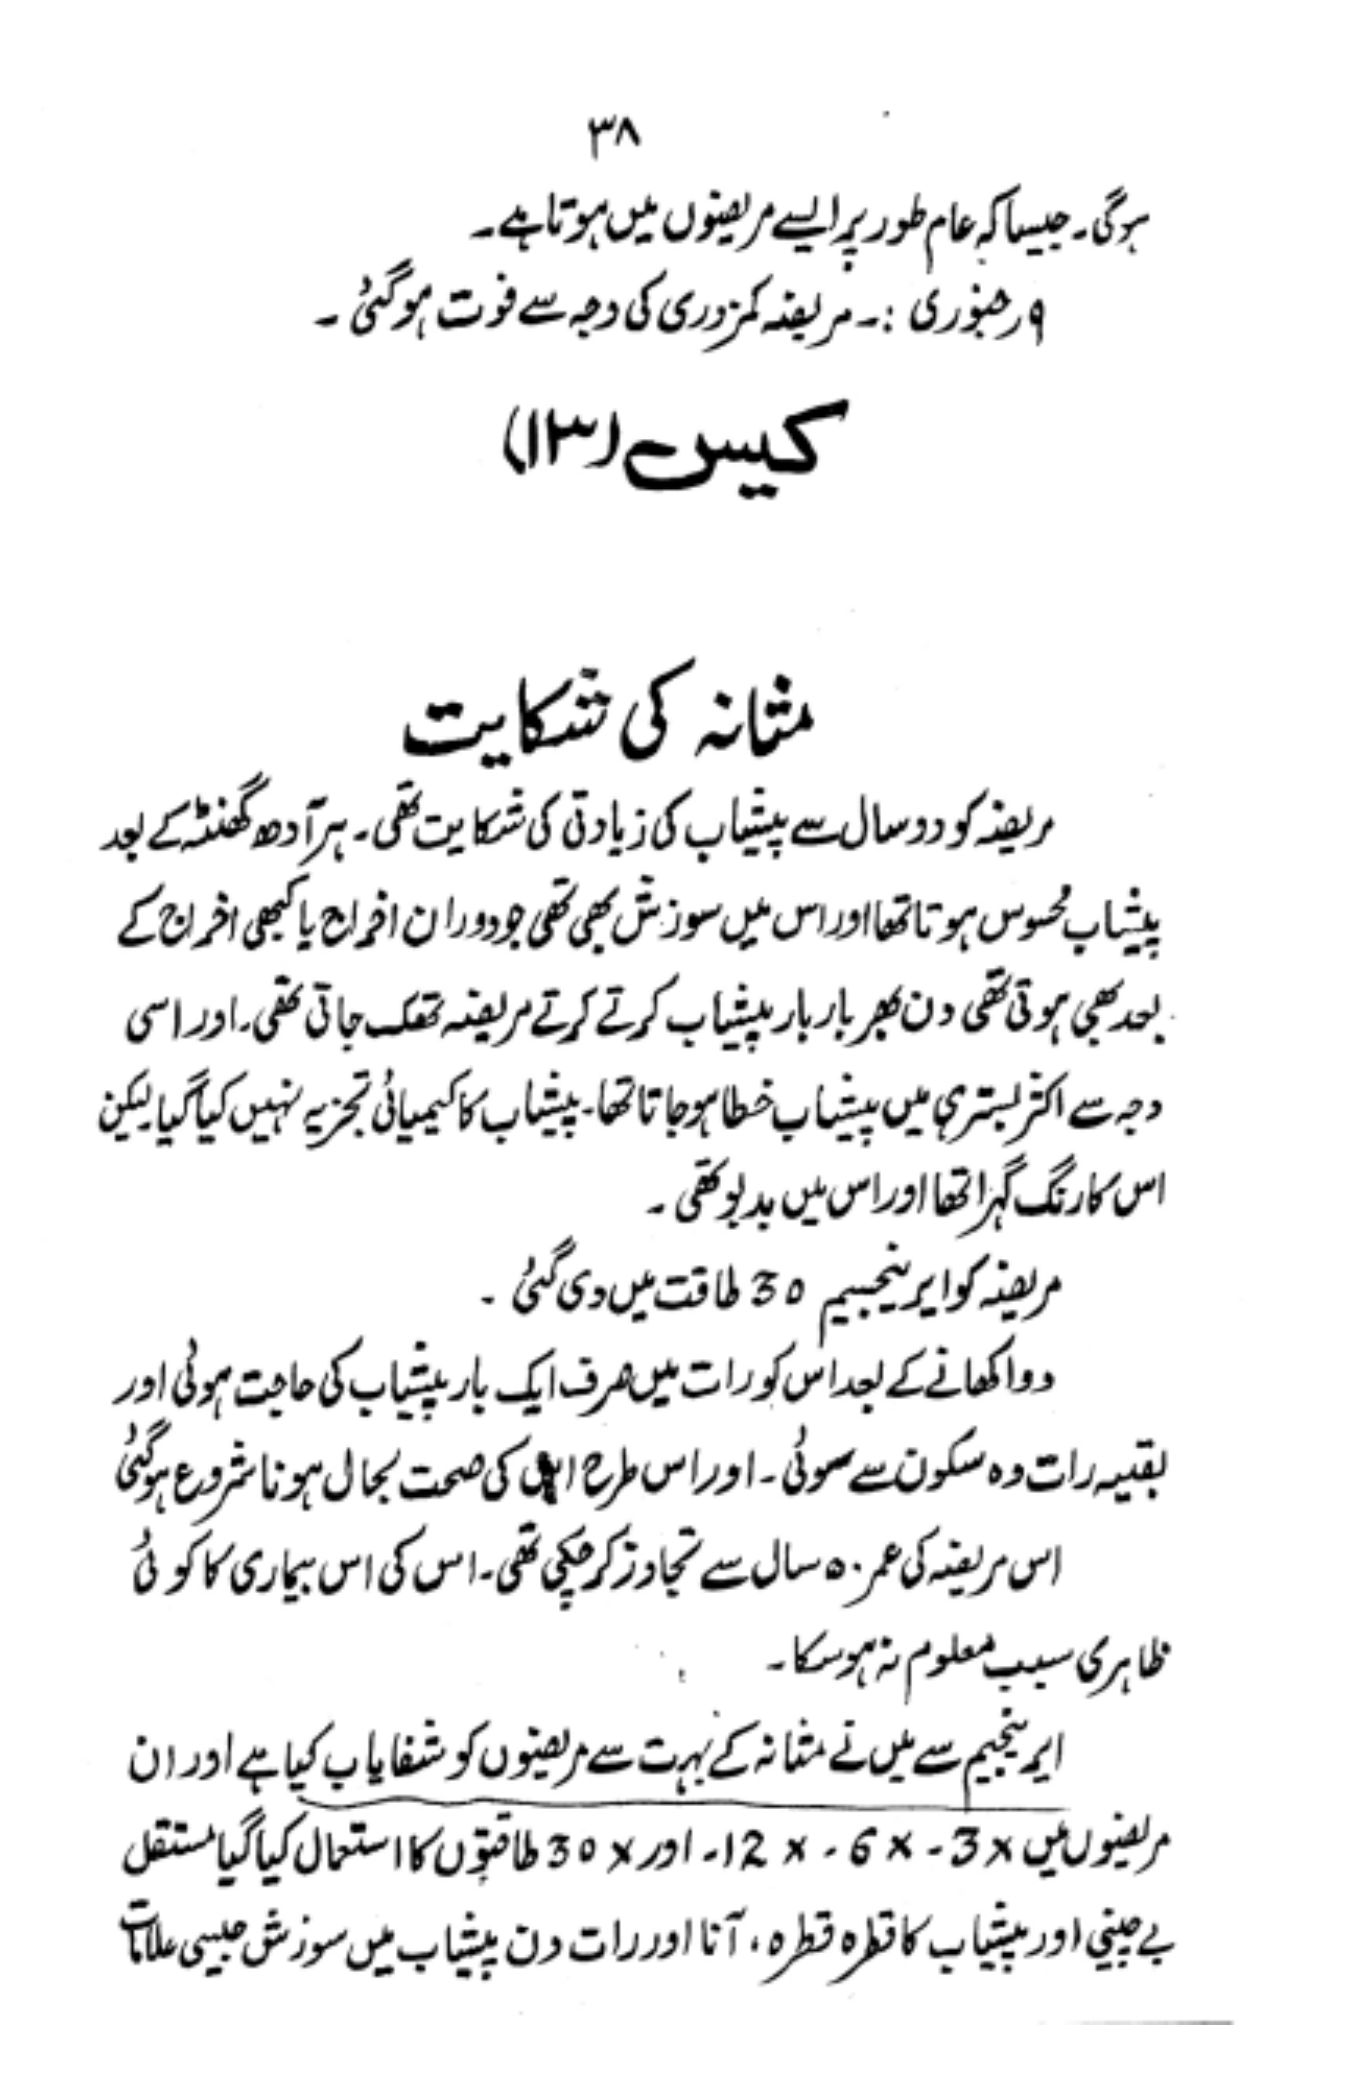 ۳۸
ہوگی۔ جیسا کہ عام طور پر ایسے مریضوں میں ہوتا ہے۔
۹ر جنوری :۔ مریضہ کمزوری کی وجہ سے فوت ہوگئی۔
کیس (۱۳)
مثانہ کی شکایت
مریضہ کو دو سال سے پیشاب کی زیادتی کی شکایت تھی۔ ہر آدھ گھنٹہ کے بعد
پیشاب محسوس ہوتا تھا اور اس میں سوزش بھی تھی جو دوران اخراج یا کبھی اخراج کے
بعد بھی ہوتی تھی دن بھر بار بار پیشاب کرتے کرتے مریضہ تھک جاتی تھی۔ اور اسی
وجہ سے اکثر بستر ہی میں پیشاب خطا ہو جاتا تھا۔ پیشاب کا کیمیائی تجزیہ نہیں کیا گیا۔ لیکن
اس کا رنگ گہرا تھا اور اس میں بدبو تھی۔
مریضہ کو ایرینجیم 30 طاقت میں دی گئی۔
دوا کھانے کے بعد اس کو رات میں صرف ایک بار پیشاب کی حاجت ہوئی اور
بقیہ رات وہ سکون سے سوئی۔ اور اس طرح اس کی صحت بحال ہونا شروع ہوگئی
اس مریضہ کی عمر ۵۰ سال سے تجاوز کر چکی تھی۔ اس کی اس بیماری کا کوئی
ظاہری سبب معلوم نہ ہو سکا۔
ایرینجیم سے میں نے مثانہ کے بہت سے مریضوں کو شفایاب کیا ہے اور ان
مریضوں میں 3x - 6x - 12x - اور 30x طاقتوں کا استعمال کیا گیا مستقل
بے چینی اور پیشاب کا قطرہ قطرہ، آنا اور رات دن پیشاب میں سوزش جیسی علامات